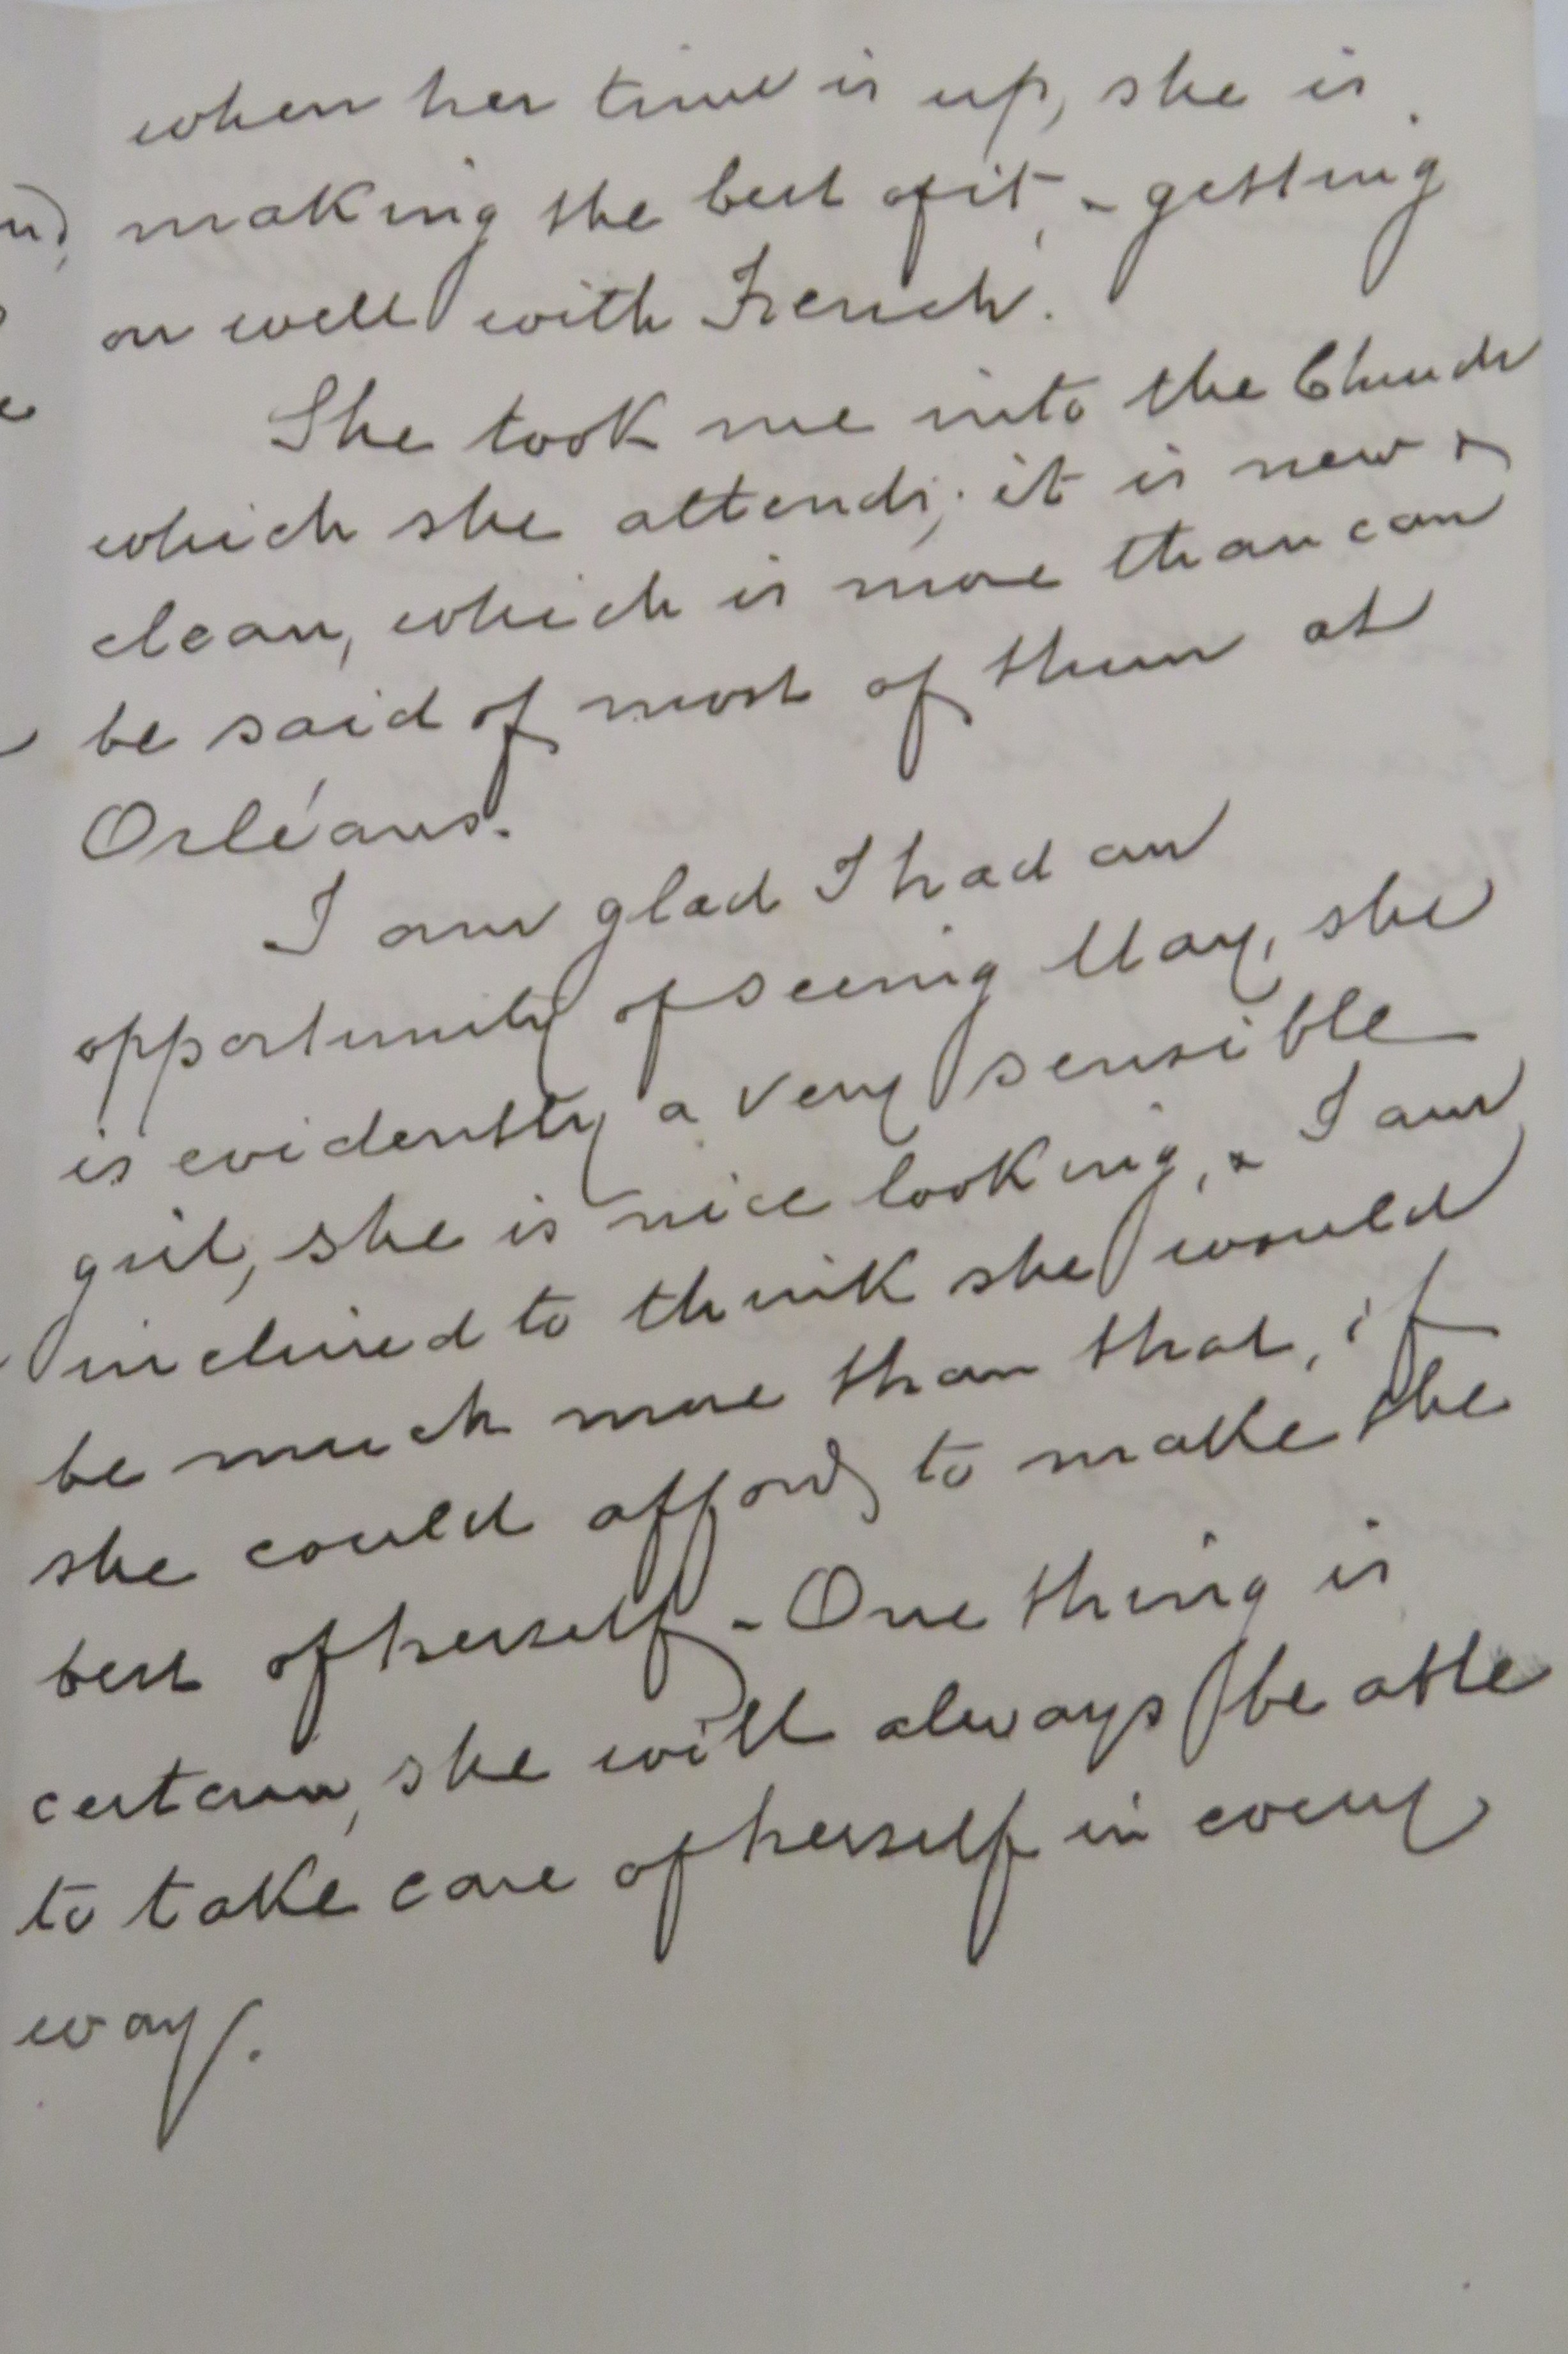 when her time is up, she is
making the best of it, - getting
on well with French.
She took me into the Church
which she attends; it is new &
clean, which is more than can
be said of most of them at
Orléans.
I am glad I had an
opportunity of seeing May, she
is evidently a very sensible
girl, she is nice looking, & I am
inclined to think she would
be much more than that, if
she could afford to make the
best of herself - One thing is
certain, she will always be able
to take care of herself in every
way.